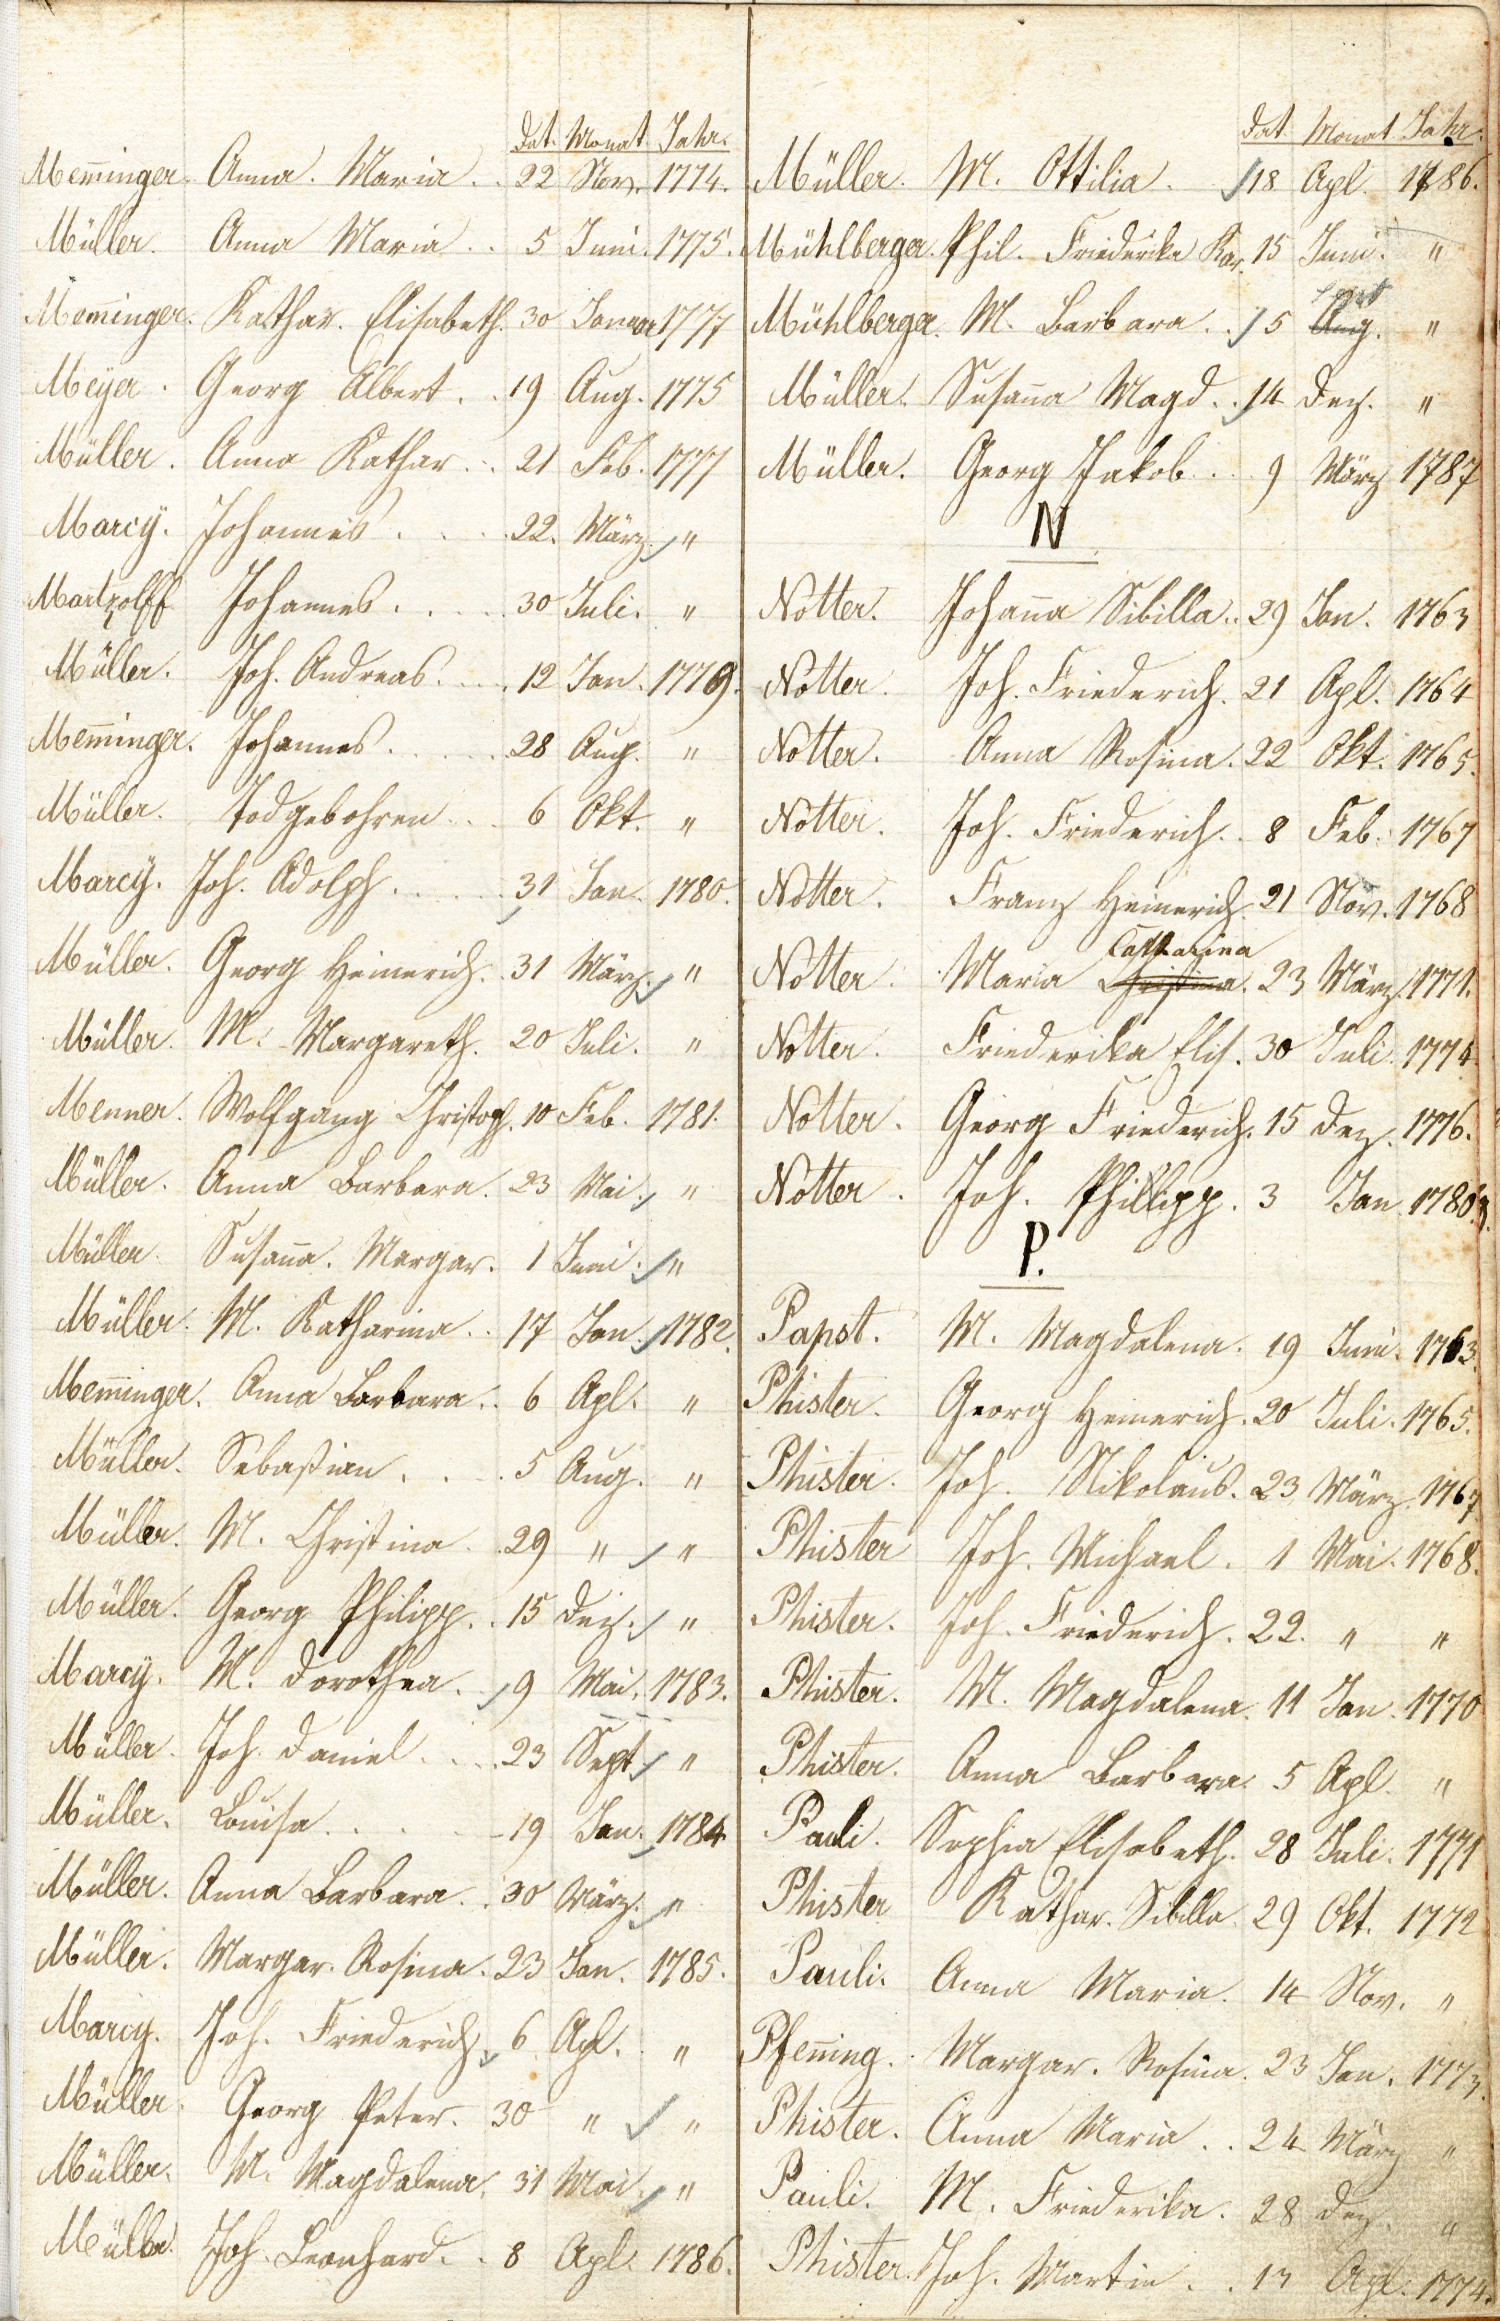 Dat. Monat. Jahr.
Mem̅inger. Anna. Maria. . 22 Nov. 1774.
Müller. Anna Maria. . 5 Juni. 1775.
Mem̅inger. Kathar. Elisabeth. 30 Januar 1777
Meÿer. Georg Albert. . 19 Aug. 1775
Müller. Anna Kathar. . 21 Feb. 1777
Marcÿ. Johannes . . . 22. März. "
Martzolff Johannes. . . . 30 Juli. "
Müller. Joh. Andreas. . . . 12 Jan. 1779.
Mem̅inger. Johannes. . . . 28 Aug. "
Müller. Todgebohren . . . 6 Okt. "
Marcÿ. Joh. Adolph. . . . . 31 Jan. 1780.
Müller. Georg Heinerich. . 31 März. "
Müller. M. Margareth. 20 Juli. "
Menner. Wolfgang Christoph. 10 Feb. 1781.
Müller. Anna Barbara. 23 Mai. "
Müller. Susan̅a. Margar. 1 Juni. "
Müller. M. Katharina. . 17 Jan. 1782.
Mem̅inger. Anna Barbara. . 6 Apl. "
Müller. Sebastian. . . . 5 Aug. "
Müller. M. Christina . 29 " "
Müller. Georg Philipp. . 15 Dez. "
Marcÿ. M. Dorothea. . 9 Mai. 1783.
Müller. Joh. Daniel. . . . 23 Sept. "
Müller. Louisa . . . . 19 Jan. 1784
Müller. Anna Barbara. . 30 März. "
Müller. Margar. Rosina. 23 Jan. 1785.
Marcy. Joh. Friederich. 6 Apl. "
Müller. Georg Peter. 30 " "
Müller. M. Magdalena. 31 Mai. "
Müller. Joh. Leonhard. . 8 Apl. 1786.
Dat. Monat Jahr.
Müller. M. Ottilia. 18 Apl. 1786.
Mühlberger. Phil. Friederika Kar. 15 Juni. "
Sept
Mühlberger. M. Barbara. . 5 Aug. "
Müller. Susan̅a Magd. . 14 Dez. "
Müller. Georg Jakob. . . 9 März 1787
N
Notter. Johan̅a Sibilla. . 29 Jan. 1763
Notter. Joh. Friederich. 21 Apl. 1764
Notter. Anna Rosina. 22 Okt. 1765.
Notter. Joh. Friederich. . 8 Feb. 1767
Notter. Franz Heinerich. 21 Nov. 1768
Catharina
Notter. Maria Christina. 23 März. 1771.
Notter. Friederika Elis. 30 Juli. 1774
Notter. Georg Friederich. 15 Dez. 1776.
Notter. Joh. Phillipp. 3 Jan. 1780.
P.
Papst. M. Magdalena. 19 Juni. 1763.
Phister. Georg Heinerich. 20 Juli. 1765.
Phister. Joh. Nikolaus. 23 März. 1767
Phister Joh. Michael. 1 Mai. 1768.
Phister. Joh. Friederich. 22. " "
Phister. M. Magdalena. 11 Jan. 1770
Phister. Anna Barbara. 5 Apl. "
Pauli. Sophia Elisabeth. 28 Juli. 1771
Phister Kathar. Sibilla. 29 Okt. 1772
Pauli. Anna Maria. 14 Nov. "
Pfen̅ing. Margar. Rosina. 23 Jan. 1773.
Phister. Anna Maria. . 24 März "
Pauli. M. Friederika. 28 Dez. "
Phister. Joh. Martin. . . 13 Apl. 1774.